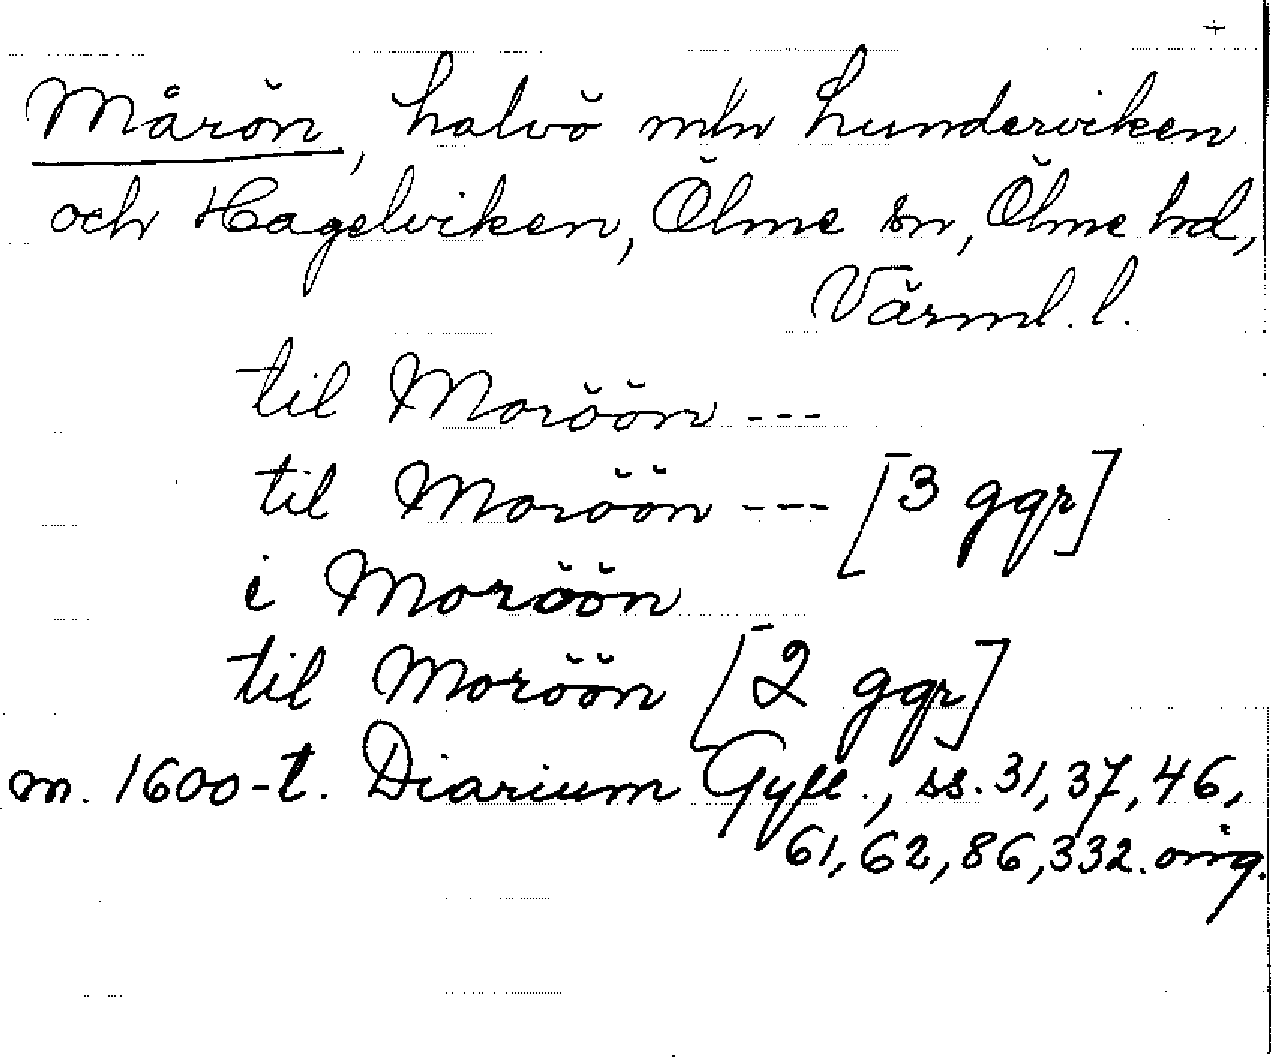 +
Mårön, halvö mln Hunderviken
och Hagelviken, Ölme sn, Ölme hd,
Värml. l.
til Moröön ---
til Moröön --- [3 ggr]
i Moröön
til Moröön [2 ggr]
m. 1600-t. Diarium Gyll., ss. 31, 37, 46,
61, 62, 86, 332. orig.